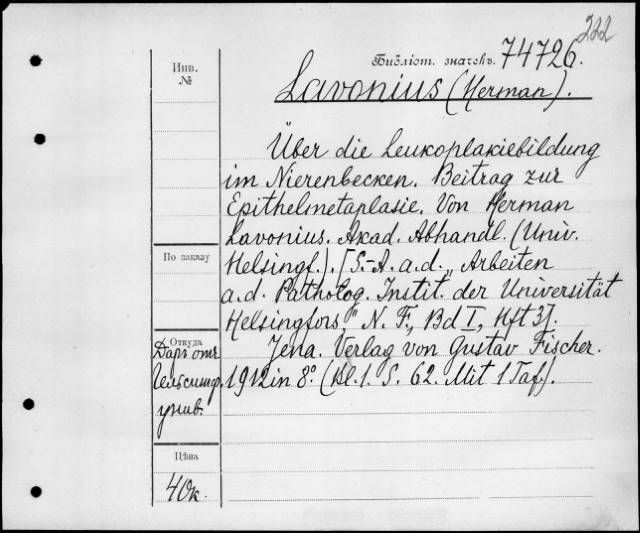 222
Библіот. значекъ. 74726.
Инв.
№
Lavonius (Herman).
Über die Leukoplakiebildung
im Nierenbecken. Beitrag zur
Epithelmetaplasie. Von Herman
Lavonius. Akad. Abhandl. (Univ.
По заказу
Helsingf.). [S.-A. a. d. „Arbeiten
a. d. Patholog. Instit. der Universität
Helsingfors," N. F., Bd I, Hft 3].
Откуда
Даръ отъ
Гельсингф.
унив.
Jena. Verlag von Gustav Fischer.
1912 in 8°. (Bl. 1. S. 62. Mit 1 Taf.).
Цѣна
40к.